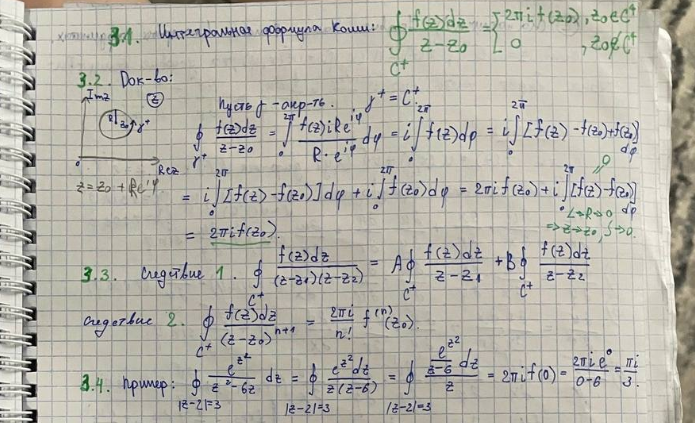 3.1. Интегральная формула Коши: ∮_{C⁺} f(z)dz/(z-z₀) = [2πi f(z₀), z₀∈C⁺
0, z₀∉C⁺
3.2. Док-во:
Imz z z₀ γ⁺ 0 Rez
Пусть γ - окр-ть. γ⁺ = C⁺.
∮_{γ⁺} f(z)dz/(z-z₀) = ∫₀^{2π} f(z)iRe^{iφ}/(R·e^{iφ}) dφ = i∫₀^{2π} f(z)dφ = i∫₀^{2π} [f(z) - f(z₀) + f(z₀)] dφ
z = z₀ + Re^{iφ}
= i∫₀^{2π} [f(z) - f(z₀)]dφ + i∫₀^{2π} f(z₀)dφ = 2πi f(z₀) + i∫₀^{2π} [f(z) - f(z₀)] dφ
R→0
⇒ z→z₀, ∫→0.
= 2πi f(z₀).
3.3. Следствие 1. ∮_{C⁺} f(z)dz/((z-z₁)(z-z₂)) = A∮_{C⁺} f(z)dz/(z-z₁) + B∮_{C⁺} f(z)dz/(z-z₂)
Следствие 2. ∮_{C⁺} f(z)dz/(z-z₀)^{n+1} = 2πi/n! f^{(n)}(z₀).
3.4. Пример: ∮_{|z-2|=3} e^{z²}/(z²-6z) dz = ∮_{|z-2|=3} e^{z²}dz/(z(z-6)) = ∮_{|z-2|=3} (e^{z²}/(z-6))dz/z = 2πi f(0) = 2πi e⁰/(0-6) = πi/3.